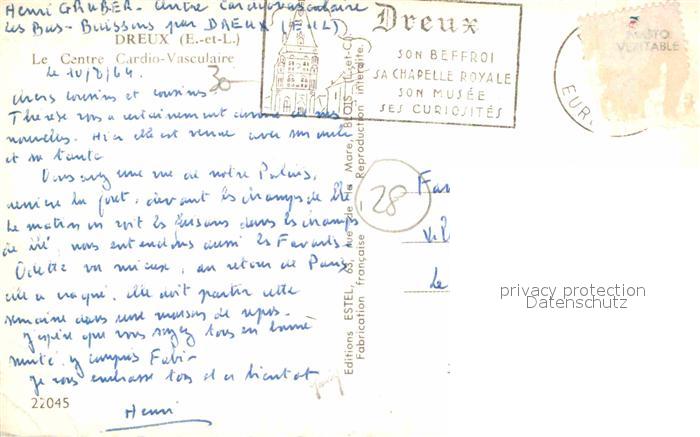 Henri GRUBER - Centre Cardiovasculaire
Les Bas-Buissons par DREUX (E-et-L)
DREUX (E.-et-L.)
Le Centre Cardio-Vasculaire
le 10/8/64.
30
chers cousins et cousines
Thérèse vous a certainement donné de mes
nouvelles. Hier elle est venue avec son oncle
et sa tante
Vous avez une vue de notre Palais,
derrière la forêt, devant les champs de blé
Le matin on voit les faisans dans les champs
de blé, nous entendons aussi les
Odette va mieux, au retour de Paris
elle a craqué, elle doit partir cette
semaine dans une maison de repos.
J'espère que vous soyez tous en bonne
santé, y compris Fabi-
Je vous embrasse tous et à bientôt
Henri
22045
Editions ESTEL, 63, rue de la Mare, BLOIS L.-et-Ch.
Fabrication française Reproduction interdite.
Dreux
SON BEFFROI
SA CHAPELLE ROYALE
SON MUSÉE
SES CURIOSITÉS
EUR
MASTO
VERITABLE
28
Fa
Vil
Le
privacy protection
Datenschutz